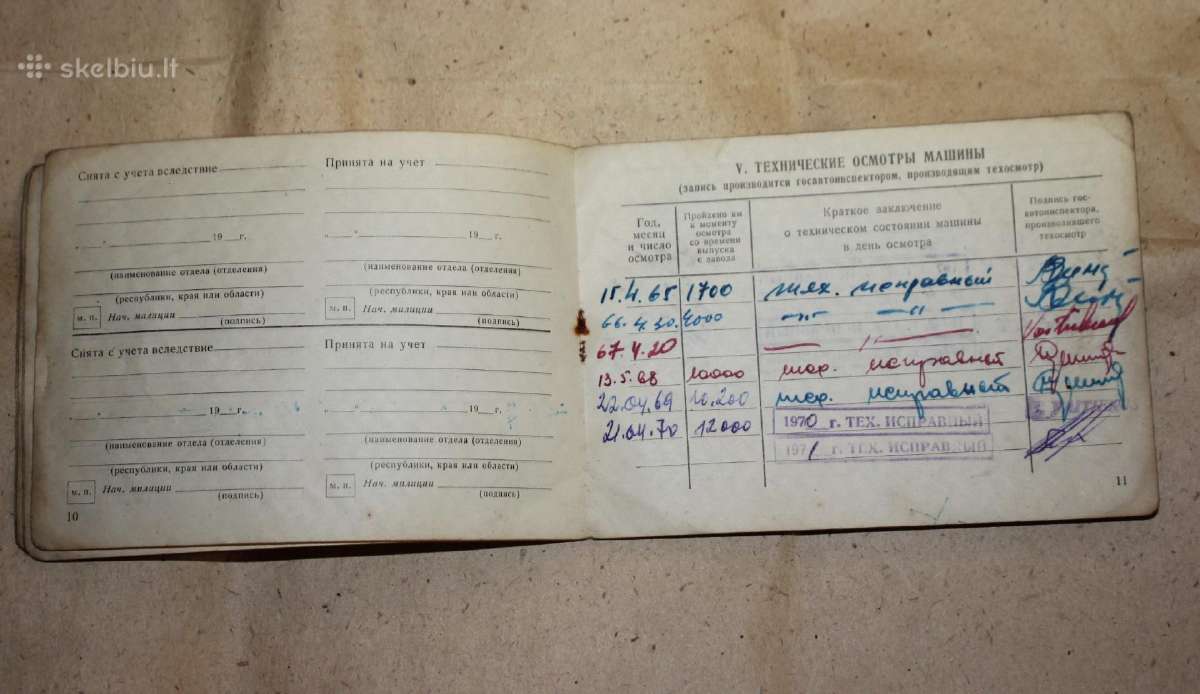 skelbiu.lt
Снята с учета вследствие
" " 19 г.
(наименование отдела (отделения)
(республики, края или области)
м. п. Нач. милиции
(подпись)
Снята с учета вследствие
" " 19 г.
(наименование отдела (отделения)
(республики, края или области)
м. п. Нач. милиции
(подпись)
10
Принята на учет
" " 19 г.
(наименование отдела (отделения)
(республики, края или области)
м. п. Нач. милиции
(подпись)
Принята на учет
" " 19 г.
(наименование отдела (отделения)
(республики, края или области)
м. п. Нач. милиции
(подпись)
V. ТЕХНИЧЕСКИЕ ОСМОТРЫ МАШИНЫ
(запись производится госавтоинспектором, производящим техосмотр)
Год, месяц и число осмотра
Пройдено км к моменту осмотра со времени выпуска с завода
Краткое заключение о техническом состоянии машины в день осмотра
Подпись гос-автоинспектора, производившего техосмотр
15.4.65 1700 тех. исправный
66.4.30. 4000 —"— —"—
67.4.20
13.5.68 10000 тех. исправен
22.04.69 10.200 тех. исправный
21.04.70 12000 1970 г. ТЕХ. ИСПРАВНЫЙ
1971 г. ТЕХ. ИСПРАВНЫЙ
11